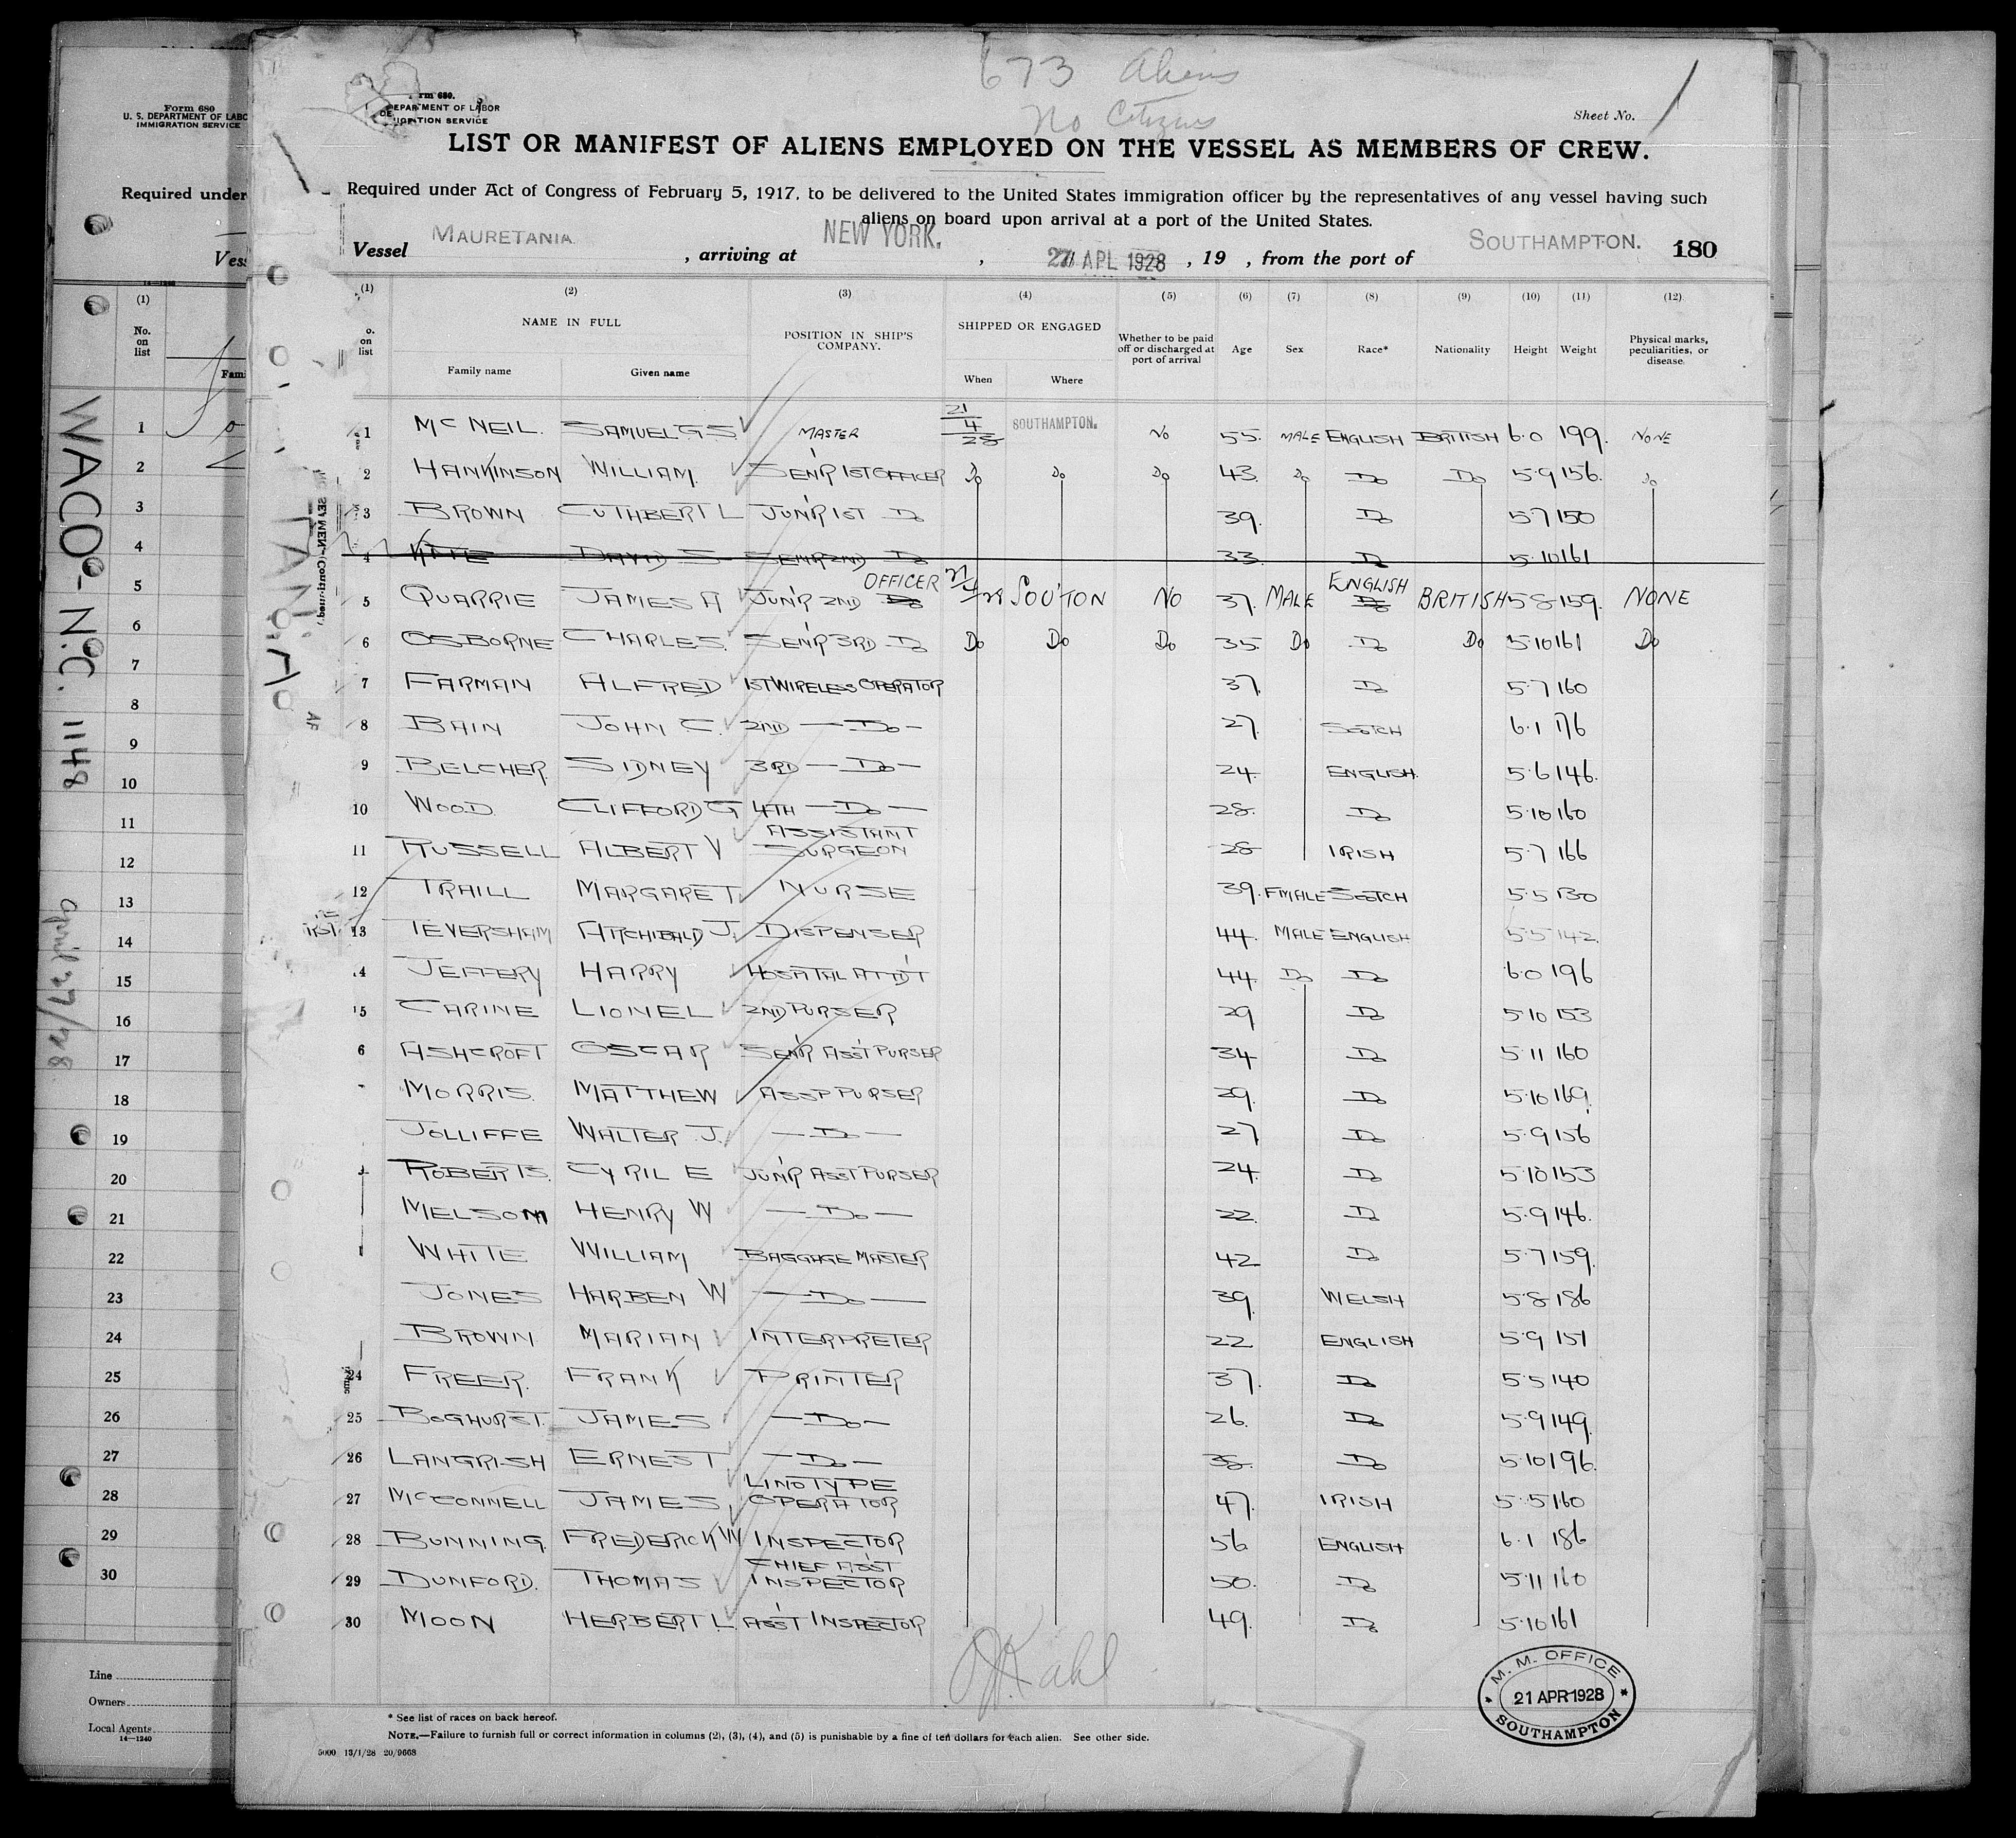 673 Aliens
No Citizens
Form 680
U. S. DEPARTMENT OF LABOR
IMMIGRATION SERVICE
Sheet No. 1
LIST OR MANIFEST OF ALIENS EMPLOYED ON THE VESSEL AS MEMBERS OF CREW.
Required under Act of Congress of February 5, 1917, to be delivered to the United States immigration officer by the representatives of any vessel having such
aliens on board upon arrival at a port of the United States.
Vessel MAURETANIA, arriving at NEW YORK., 27 APL 1928, 19 , from the port of SOUTHAMPTON. 180
(1) (2) (3) (4) (5) (6) (7) (8) (9) (10) (11) (12)
No. on list NAME IN FULL Family name Given name POSITION IN SHIP'S COMPANY. SHIPPED OR ENGAGED When Where Whether to be paid off or discharged at port of arrival Age Sex Race* Nationality Height Weight Physical marks, peculiarities, or disease.
1 McNEIL. SAMUEL G S MASTER 21/4/28 SOUTHAMPTON. No 55. MALE ENGLISH BRITISH 6.0 199. NONE
2 HANKINSON WILLIAM. SEN'R 1ST OFFICER Do Do Do 43. Do Do Do 5.9 156. Do
3 BROWN CUTHBERT L JUN'R 1ST Do 39. Do 5.7 150
4 DAVID S SEN'R 2ND Do 33 Do 5.10 161
5 QUARRIE JAMES A JUN'R 2ND OFFICER 21/4/28 SOU'TON NO 37. MALE ENGLISH BRITISH 5.8 159. NONE
6 OSBORNE CHARLES. SEN'R 3RD Do Do Do Do 35. Do Do Do 5.10 161 Do
7 FARMAN ALFRED 1ST WIRELESS OPERATOR 37. Do 5.7 160
8 BAIN JOHN C. 2ND — Do — 27. SCOTCH 6.1 176
9 BELCHER. SIDNEY 3RD — Do — 24. ENGLISH. 5.6 146.
10 WOOD CLIFFORD G 4TH — Do — 28. Do 5.10 160
11 RUSSELL ALBERT V ASSISTANT SURGEON 28 IRISH 5.7 166
12 TRAILL MARGARET NURSE 39. FMALE SCOTCH 5.5 130
13 TEVERSHAM ARCHIBALD J. DISPENSER 44. MALE ENGLISH 5.5 142
14 JEFFERY HARRY HOSPITAL ATT'D'T 44. Do Do 6.0 196
15 CARINE LIONEL 2ND PURSER 29 Do 5.10 153
6 ASHCROFT OSCAR SEN'R ASS'T PURSER 34 Do 5.11 160
MORRIS. MATTHEW ASST PURSER 29. Do 5.10 169.
JOLLIFFE WALTER J. — Do — 27 Do 5.9 156
ROBERTS. CYRIL E JUN'R ASST PURSER 24. Do 5.10 153
MELSOM HENRY W — Do — 22. Do 5.9 146.
WHITE WILLIAM BAGGAGE MASTER 42 Do 5.7 159.
JONES HARBEN W — Do — 39. WELSH 5.8 186
BROWN MARIAN INTERPRETER 22 ENGLISH 5.9 151
24 FREER. FRANK PRINTER 37. Do 5.5 140
25 BOGHURST. JAMES — Do — 26. Do 5.9 149.
26 LANGRISH ERNEST — Do — 38. Do 5.10 196.
27 McCONNELL JAMES LINOTYPE OPERATOR 47. IRISH 5.5 160
28 BUNNING. FREDERICK W INSPECTOR 56 ENGLISH 6.1 186
29 DUNFORD. THOMAS CHIEF ASS'T INSPECTOR 50. Do 5.11 160
30 MOON HERBERT L. ASS'T INSPECTOR 49. Do 5.10 161
Kahl
M. M. OFFICE
21 APR 1928
SOUTHAMPTON
* See list of races on back hereof.
NOTE.—Failure to furnish full or correct information in columns (2), (3), (4), and (5) is punishable by a fine of ten dollars for each alien. See other side.
5000 13/1/28 20/9668
Form 680
U. S. DEPARTMENT OF LABO
IMMIGRATION SERVICE
Required under
Vess
(1)
No.
on
list
Fami
1
2
3
4
5
6
7
8
9
10
11
12
13
14
15
16
17
18
19
20
21
22
23
24
25
26
27
28
29
30
Line
Owners
Local Agents
14—1240
WACO - No C. 1148
April 27/28